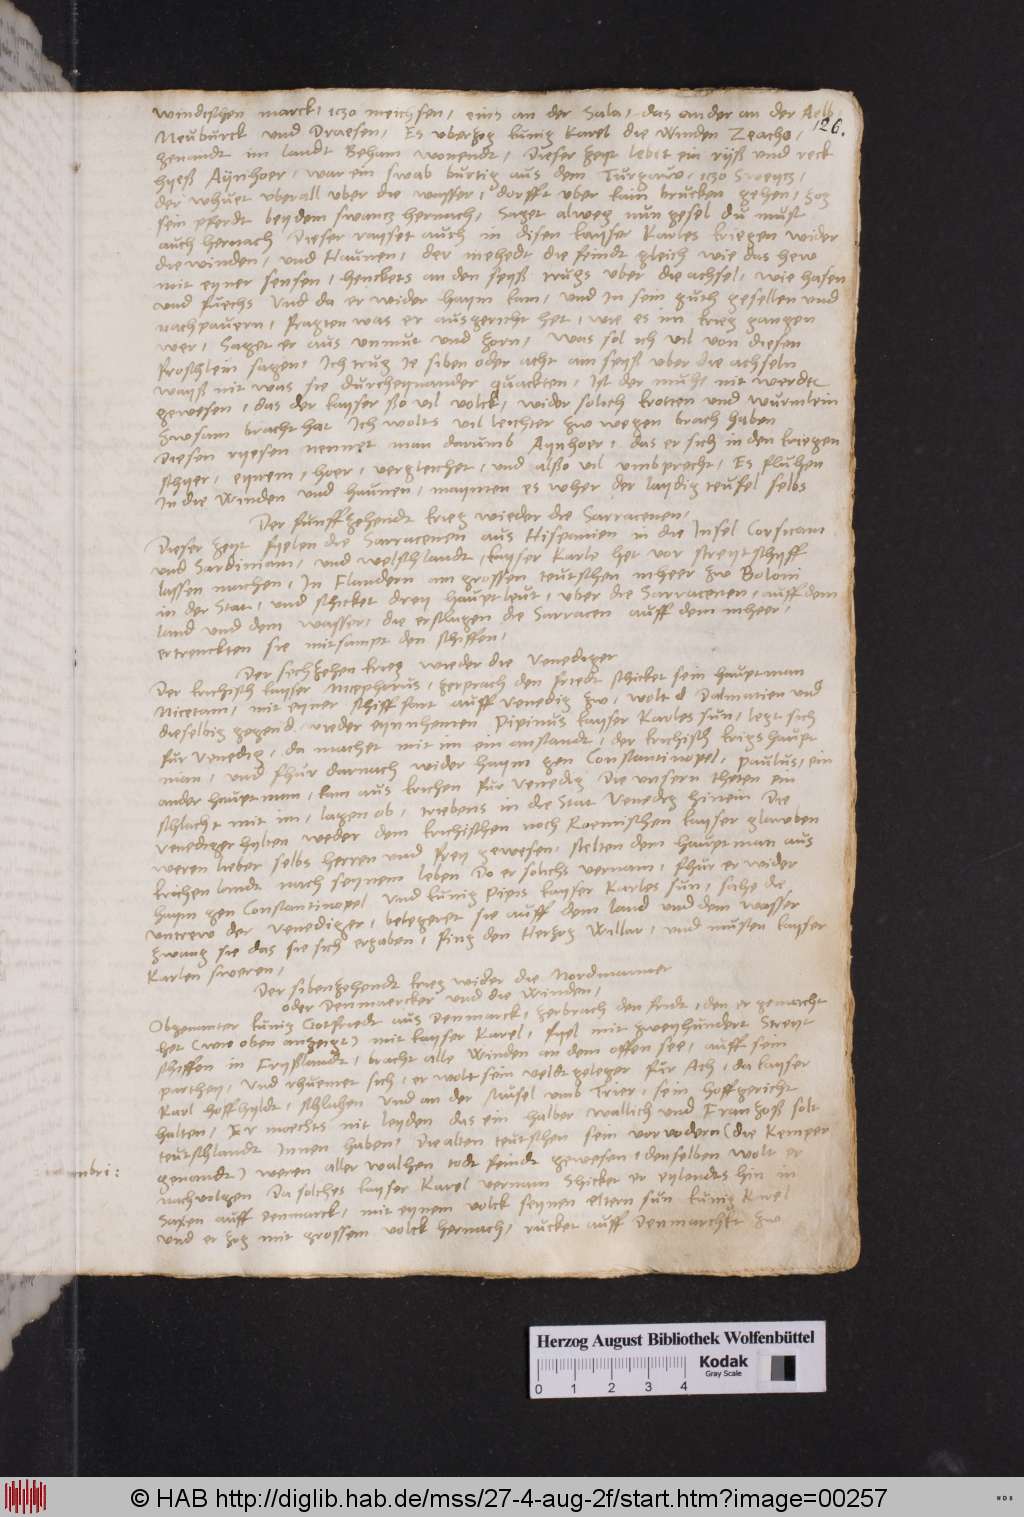 windischen marck, itzo meichsen, eins an der Sala, das ander an der Aelb,
126.
Neuburck und Draesen, Es uberzog kunig Karel die Winden Zeacho,
genandt im landt Beham wonendt, Dieser zeyt lebet ein ryß und reck
hyeß Aynhoer, war ein swab burtig aus dem Turgaw, itzo Sweytz,
der whuet uberall uber die wasser, dorfft uber kain brucken gehen, zog
sein pferdt bey dem swantz hernach, Saget alweg nun gesel du must
auch hernach Dieser rayset auch in disen kayser Karles kriegen wider
die winden, und Haunen, der mehedt die feindt gleich wie das hew
mit eyner sensen, henckets an den spyß trugs uber die achsel, wie hasen
und fuechs Und da er wider haym kam, und In sein guth gesellen und
nachpauern, fragten was er ausgericht het, wie es im krieg gangen
wer, Saget er aus unmut und zorn, was sol ich vil von diesen
froschlein sagen, Ich trug Ie siben oder acht am spyß uber die achseln
wayß nit was sie durcheynander quackten, Ist der muhe nit werdt
gewesen, das der kayser ßo vil volck, wider solich krotten und wurmlein
zwsam bracht hat Ich wolts vil leichter zw wegen brach haben
Diesen ryesen nennet man darumb Aynhoer, das er sich in den kriegen
schyer, eynem, hoer, vergleichet, und alßo vil umbprecht, Es fluhen
In die Winden und haunen, maynten es wher der laydig teufel selbs
Der funffzehendt krieg wieder die Sarracenen,
Dieser zeyt fyelen die Sarracenen aus Hispanien in die Insel Corsicam
und Sardiniam, und welschlandt, kayser Karle het vor streytschyff
lassen machen, In Flandern am grossen teutschen mheer zw Boloni
in der Stat, und schicket drey hauptleut, uber die Sarracenen, auff dem
land und dem wasser, die erschlugen die Sarracen auff dem mheer,
ertrenckten sie mitsampt den schiffen,
Der sechzehen krieg wieder die Venediger
Der krichisch kayser Nicephorus, zerprach den friedt schicket sein hauptman
Nicetam, mit eyner schiffart auff Venedig zw, wolt d Dalmatien und
dieselbig gegend wieder eynnhemen Pipinus kayser Karles sun, legt sich
fur Venedig, da machet mit im ein anstandt, der krichisch krigshaupt
man, und fhur darnach wider haym gen Constantinopel, Paulus, ein
ander hauptman, kam aus krichen fur Venedig Die unsern theten ein
schlacht mit im, lagen ob, triebens in die Stat Venedig hinein Die
Venediger hylten weder dem krichischen noch Roemischen kayser glawben
weren lieber selbs herren und frey gewesen, stelten dem hauptman aus
krichenlandt nach seynem leben Do er solichs vernam, fhur er wider
haym gen Constantinopel Und kunig Pipis kayser Karles sun, sahe die
untrew der Venediger, belegeret sie auff dem land und dem wasser
zwang sie das sie sich ergaben, fing den Hertzog Willar, und musten kayser
Karlen sweren,
Der sibenzehendt krieg wider die Nordmanner
oder Denmaercker und die Winden,
Obgenanter kunig Gotfriedt aus Denmarck, zerbrach den fridt, den er gemacht
het (wie oben anzeigt) mit kayser Karel, fyel mit zweyhundert Streyt
schiffen in Fryßlandt, bracht alle Winden an dem offen see, auff sein
parthey, Und rhuemet sich, er wolt sein veldtgeleger fur Ach, da kayser
Karl hoff hyldt, schlahen Und an der Musel umb Trier, sein hoffgericht
halten, Er moechts nit leyden das ein halber wallich und Franzoß solt
teutschlandt Innen haben, Die alten teutschen sein vorvodern (die Kemper
genandt) weren aller walhen todt feindt gewesen, denselben wolt er
nachvolgen Da solches kayser Karel vernam Schicket er eylendts hin in
Saxen auff denmarck, mit eynem volck seynen eltern sun kunig Karel
und er zog mit grossem volck hernach, rucket auff Denmarckt zw
Herzog August Bibliothek Wolfenbüttel
0 1 2 3 4
Kodak
Gray Scale
© HAB http://diglib.hab.de/mss/27-4-aug-2f/start.htm?image=00257